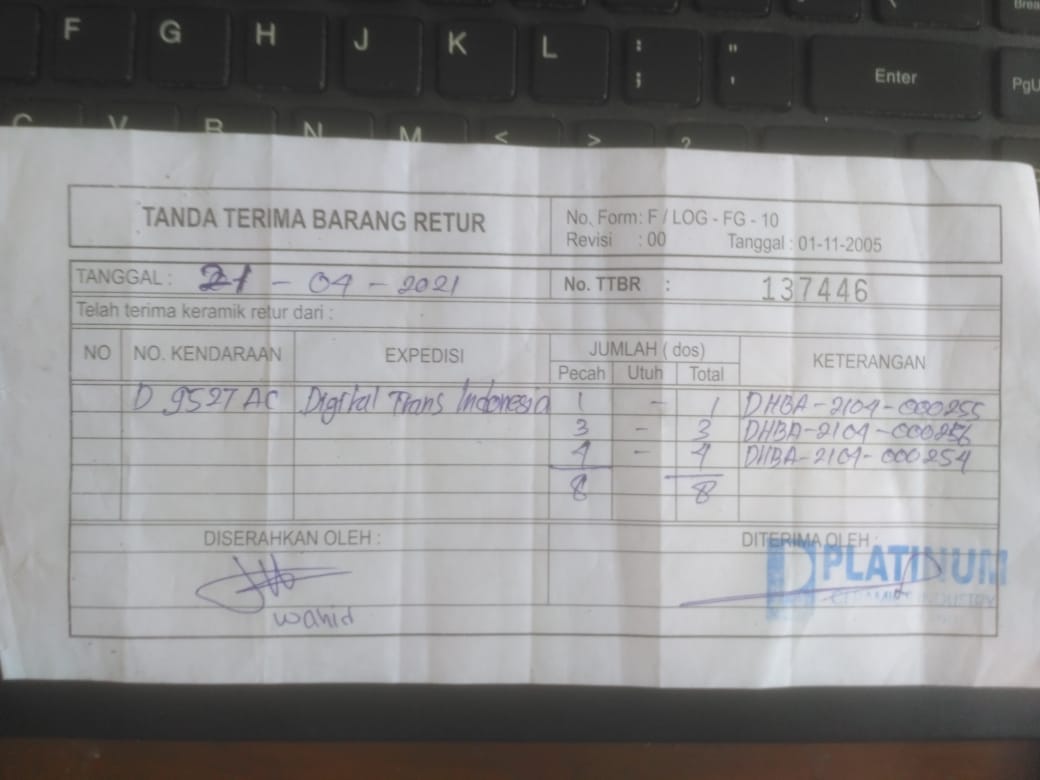 F G H J K L : ; " ' Enter
Break
PgU
C V B N M < > ?
TANDA TERIMA BARANG RETUR
No. Form : F / LOG - FG - 10
Revisi : 00 Tanggal : 01-11-2005
TANGGAL : 21 - 04 - 2021 No. TTBR : 137446
Telah terima keramik retur dari :
NO NO. KENDARAAN EXPEDISI JUMLAH ( dos) KETERANGAN
Pecah Utuh Total
D 9527 AC Digital Trans Indonesia 1 - 1 DHBA-2104-000255
3 - 3 DHBA-2104-000256
4 - 4 DHBA-2104-000254
8 8
DISERAHKAN OLEH : DITERIMA OLEH :
PLATINUM
CERAMICS INDUSTRY
Wahid